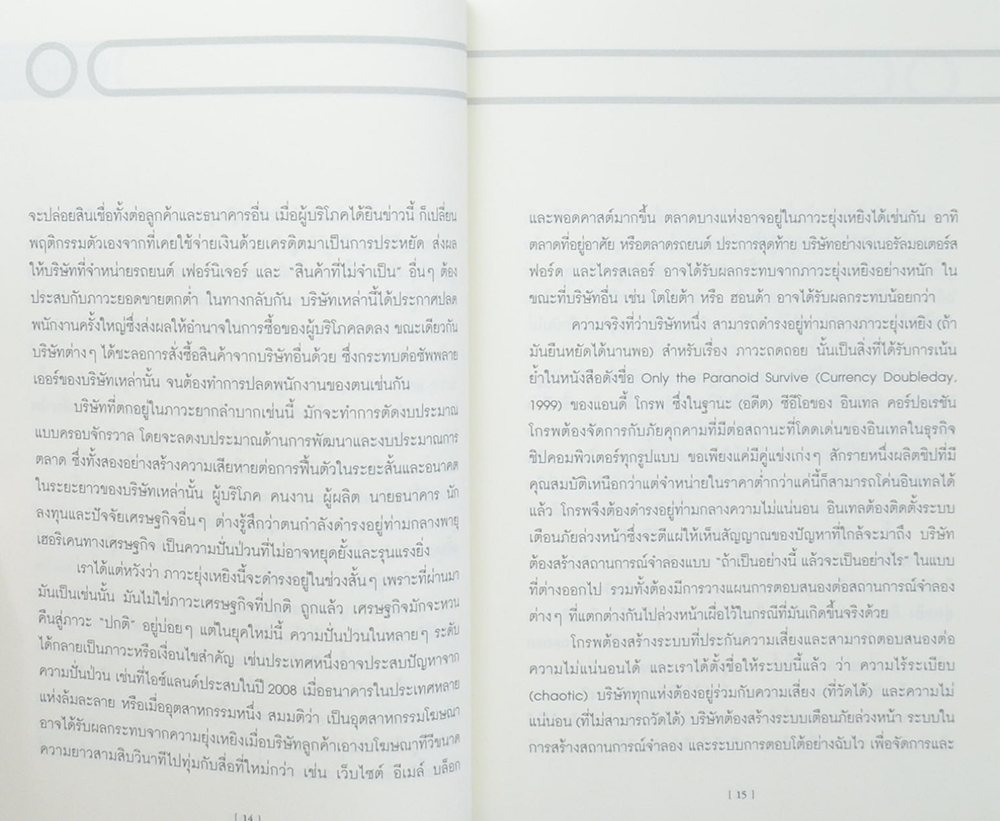 จะปล่อยสินเชื่อทั้งต่อลูกค้าและธนาคารอื่น เมื่อผู้บริโภคได้ยินข่าวนี้ ก็เปลี่ยน
พฤติกรรมตัวเองจากที่เคยใช้จ่ายเงินด้วยเครดิตมาเป็นการประหยัด ส่งผล
ให้บริษัทที่จำหน่ายรถยนต์ เฟอร์นิเจอร์ และ "สินค้าที่ไม่จำเป็น" อื่นๆ ต้อง
ประสบกับภาวะยอดขายตกต่ำ ในทางกลับกัน บริษัทเหล่านี้ได้ประกาศปลด
พนักงานครั้งใหญ่ซึ่งส่งผลให้อำนาจในการซื้อของผู้บริโภคลดลง ขณะเดียวกัน
บริษัทต่างๆ ได้ชะลอการสั่งซื้อสินค้าจากบริษัทอื่นด้วย ซึ่งกระทบต่อซัพพลาย
เออร์ของบริษัทเหล่านั้น จนต้องทำการปลดพนักงานของตนเช่นกัน
บริษัทที่ตกอยู่ในภาวะยากลำบากเช่นนี้ มักจะทำการตัดงบประมาณ
แบบครอบจักรวาล โดยจะลดงบประมาณด้านการพัฒนาและงบประมาณการ
ตลาด ซึ่งทั้งสองอย่างสร้างความเสียหายต่อการฟื้นตัวในระยะสั้นและอนาคต
ในระยะยาวของบริษัทเหล่านั้น ผู้บริโภค คนงาน ผู้ผลิต นายธนาคาร นัก
ลงทุนและปัจจัยเศรษฐกิจอื่นๆ ต่างรู้สึกว่าตนกำลังดำรงอยู่ท่ามกลางพายุ
เฮอริเคนทางเศรษฐกิจ เป็นความปั่นป่วนที่ไม่อาจหยุดยั้งและรุนแรงยิ่ง
เราได้แต่หวังว่า ภาวะยุ่งเหยิงนี้จะดำรงอยู่ในช่วงสั้นๆ เพราะที่ผ่านมา
มันเป็นเช่นนั้น มันไม่ใช่ภาวะเศรษฐกิจที่ปกติ ถูกแล้ว เศรษฐกิจมักจะหวน
คืนสู่ภาวะ "ปกติ" อยู่บ่อยๆ แต่ในยุคใหม่นี้ ความปั่นป่วนในหลายๆ ระดับ
ได้กลายเป็นภาวะหรือเงื่อนไขสำคัญ เช่นประเทศหนึ่งอาจประสบปัญหาจาก
ความปั่นป่วน เช่นที่ไอซ์แลนด์ประสบในปี 2008 เมื่อธนาคารในประเทศหลาย
แห่งล้มละลาย หรือเมื่ออุตสาหกรรมหนึ่ง สมมติว่า เป็นอุตสาหกรรมโฆษณา
อาจได้รับผลกระทบจากความยุ่งเหยิงเมื่อบริษัทลูกค้าเอางบโฆษณาทีวีขนาด
ความยาวสามสิบวินาทีไปทุ่มกับสื่อที่ใหม่กว่า เช่น เว็บไซต์ อีเมล์ บล็อก
[ 14 ]
และพอดคาสต์มากขึ้น ตลาดบางแห่งอาจอยู่ในภาวะยุ่งเหยิงได้เช่นกัน อาทิ
ตลาดที่อยู่อาศัย หรือตลาดรถยนต์ ประการสุดท้าย บริษัทอย่างเจเนอรัลมอเตอร์ส
ฟอร์ด และไครสเลอร์ อาจได้รับผลกระทบจากภาวะยุ่งเหยิงอย่างหนัก ใน
ขณะที่บริษัทอื่น เช่น โตโยต้า หรือ ฮอนด้า อาจได้รับผลกระทบน้อยกว่า
ความจริงที่ว่าบริษัทหนึ่ง สามารถดำรงอยู่ท่ามกลางภาวะยุ่งเหยิง (ถ้า
มันยืนหยัดได้นานพอ) สำหรับเรื่อง ภาวะถดถอย นั้นเป็นสิ่งที่ได้รับการเน้น
ย้ำในหนังสือดังชื่อ Only the Paranoid Survive (Currency Doubleday,
1999) ของแอนดี้ โกรพ ซึ่งในฐานะ (อดีต) ซีอีโอของ อินเทล คอร์ปอเรชัน
โกรพต้องจัดการกับภัยคุกคามที่มีต่อสถานะที่โดดเด่นของอินเทลในธุรกิจ
ชิปคอมพิวเตอร์ทุกรูปแบบ ขอเพียงแค่มีคู่แข่งเก่งๆ สักรายหนึ่งผลิตชิปที่มี
คุณสมบัติเหนือกว่าแต่จำหน่ายในราคาต่ำกว่าแค่นี้ก็สามารถโค่นอินเทลได้
แล้ว โกรพจึงต้องดำรงอยู่ท่ามกลางความไม่แน่นอน อินเทลต้องติดตั้งระบบ
เตือนภัยล่วงหน้าซึ่งจะตีแผ่ให้เห็นสัญญาณของปัญหาที่ใกล้จะมาถึง บริษัท
ต้องสร้างสถานการณ์จำลองแบบ "ถ้าเป็นอย่างนี้ แล้วจะเป็นอย่างไร" ในแบบ
ที่ต่างออกไป รวมทั้งต้องมีการวางแผนการตอบสนองต่อสถานการณ์จำลอง
ต่างๆ ที่แตกต่างกันไปล่วงหน้าเผื่อไว้ในกรณีที่มันเกิดขึ้นจริงด้วย
โกรพต้องสร้างระบบที่ประกันความเสี่ยงและสามารถตอบสนองต่อ
ความไม่แน่นอนได้ และเราได้ตั้งชื่อให้ระบบนี้แล้ว ว่า ความไร้ระเบียบ
(chaotic) บริษัททุกแห่งต้องอยู่ร่วมกับความเสี่ยง (ที่วัดได้) และความไม่
แน่นอน (ที่ไม่สามารถวัดได้) บริษัทต้องสร้างระบบเตือนภัยล่วงหน้า ระบบใน
การสร้างสถานการณ์จำลอง และระบบการตอบโต้อย่างฉับไว เพื่อจัดการและ
[ 15 ]